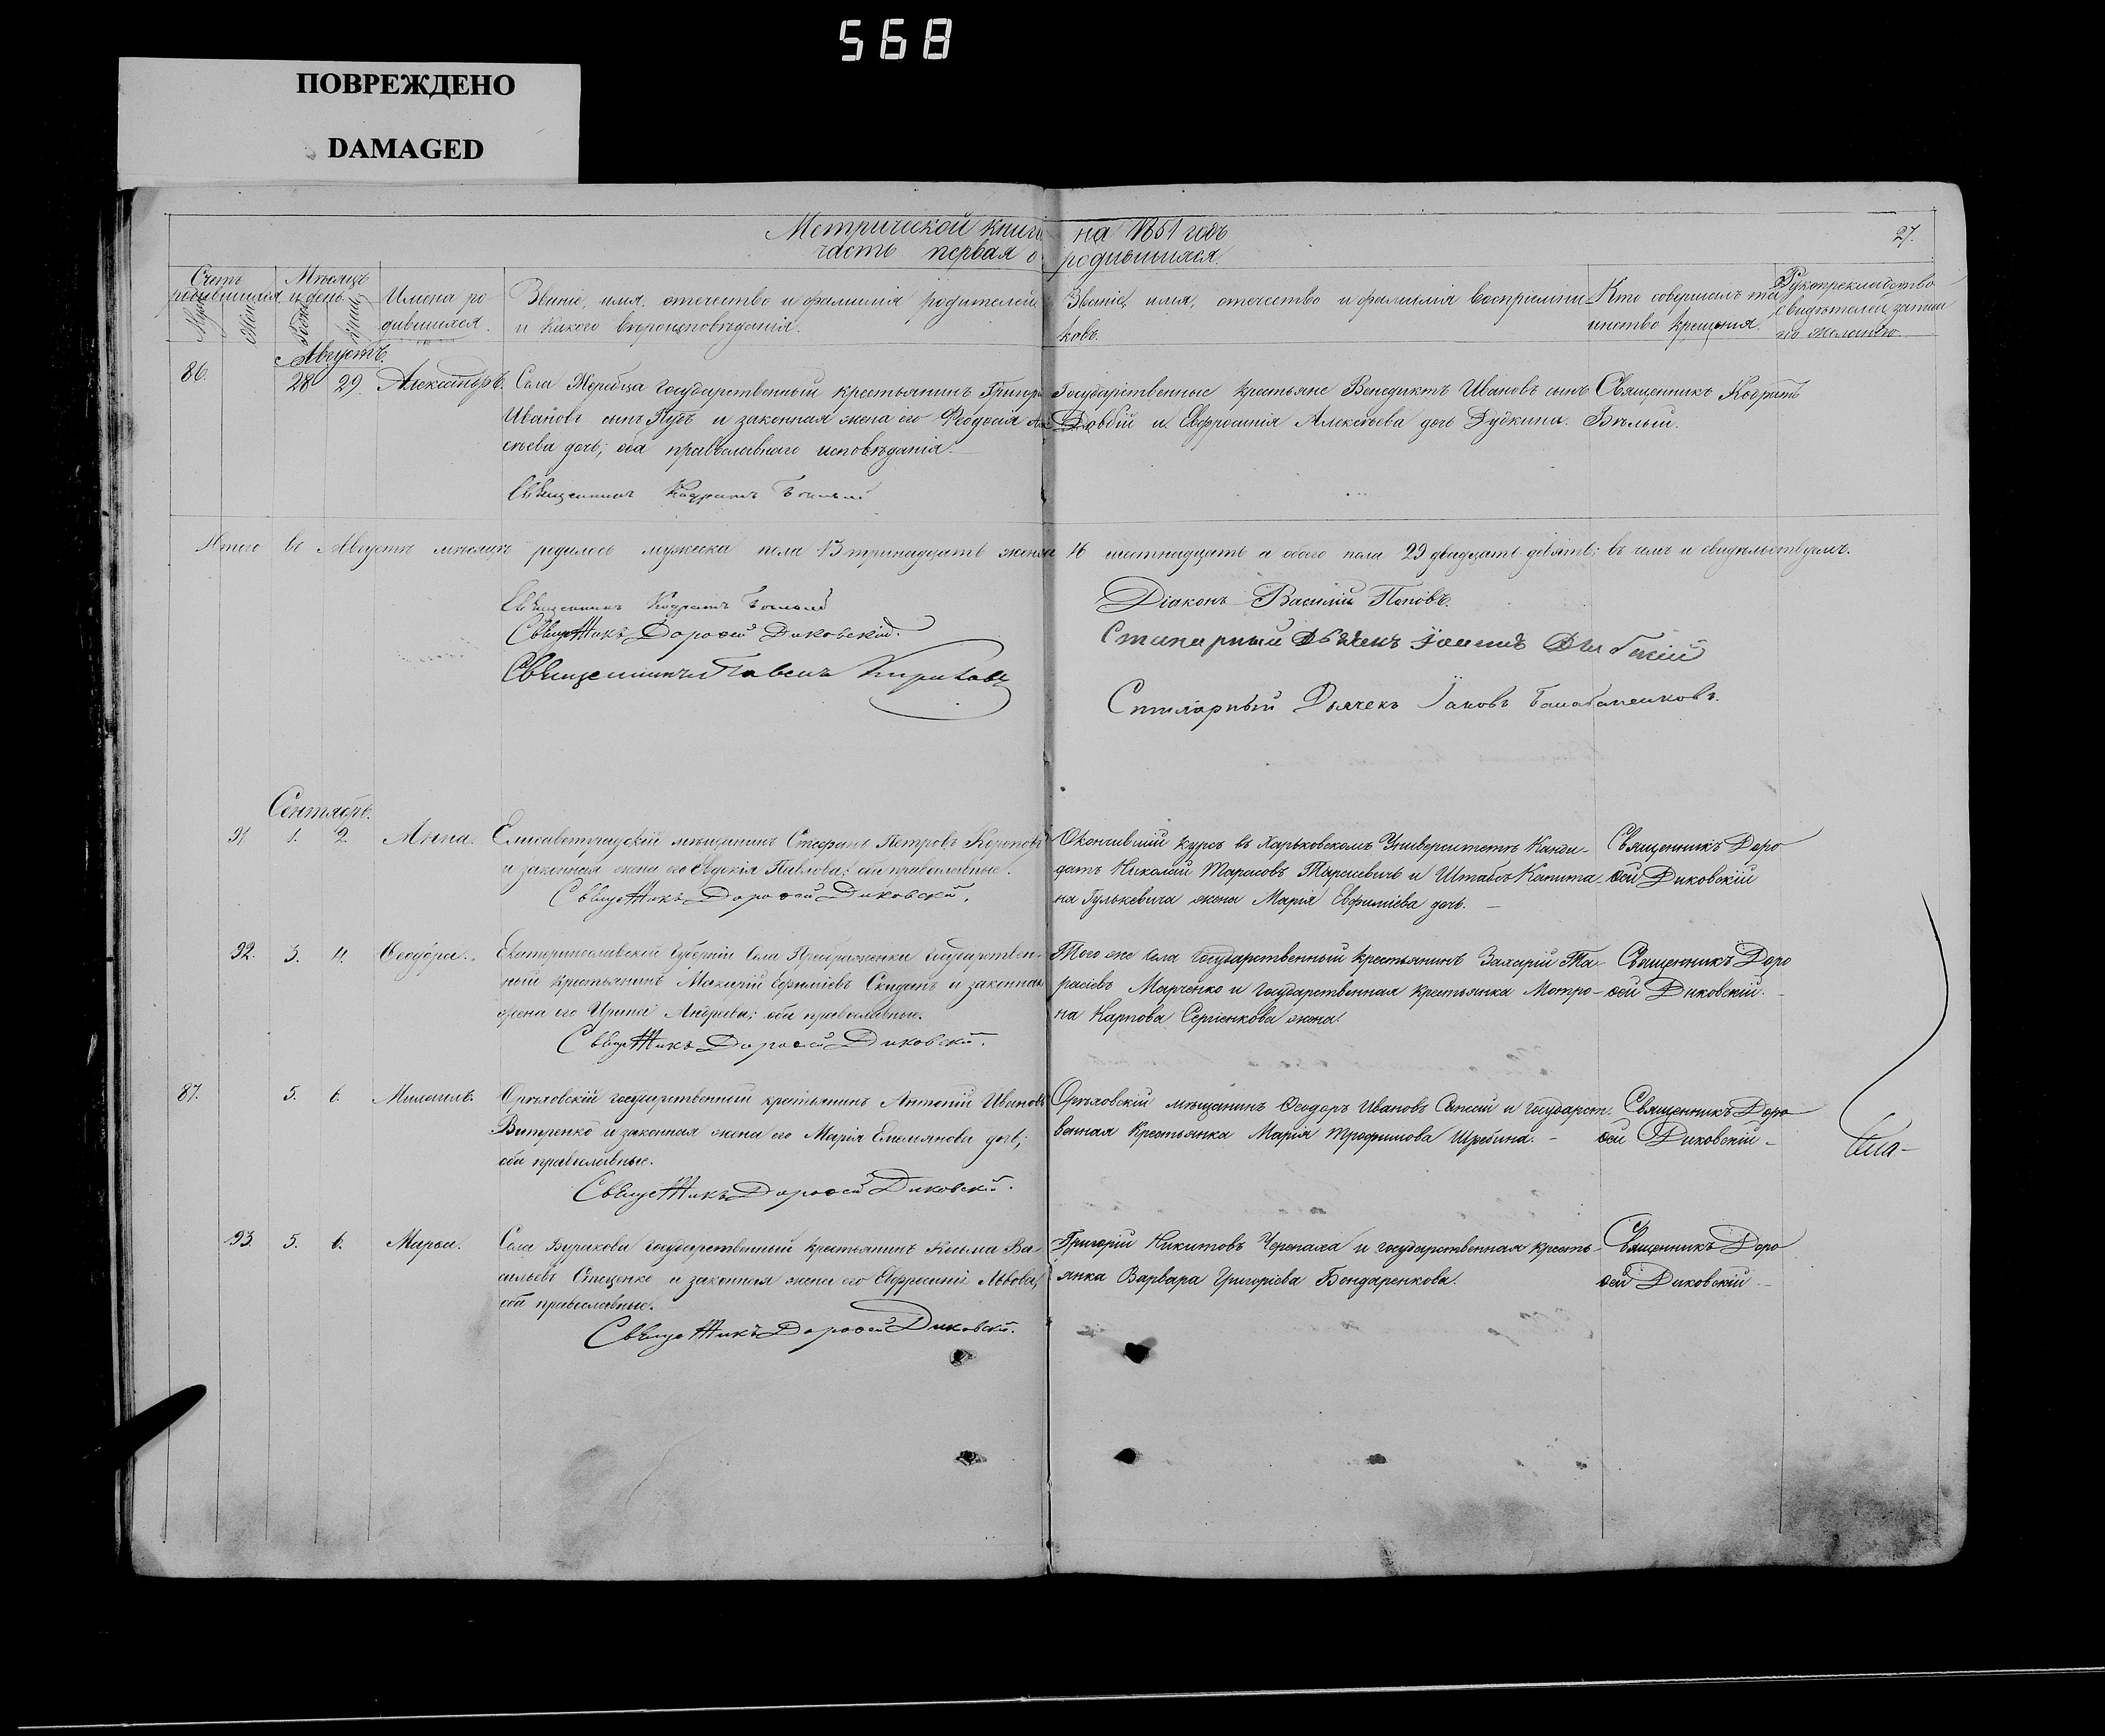 568
ПОВРЕЖДЕНО
DAMAGED
Метрической книги на 1851 годъ
часть первая о родившихся.
27.
Счетъ родившихся
Муж.
Жен.
Мѣсяцъ и день
Рожд.
Крещ.
Имена ро
дившихся.
Званіе, имя, отечество и фамилія родителей
и какого вѣроисповѣданія.
Званіе, имя, отечество и фамилія воспріемни-
ковъ.
Кто совершалъ та
инство крещенія.
Рукоприкладство
свидѣтелей записи
по желанію
Августъ.
86. 28 29. Александръ.
Села Жеребца государственный крестьянинъ Григорій
Ивановъ сынъ и законная жена его Феодосія Алек
сѣева дочь; оба православнаго исповѣданія.
Священникъ Кодратъ Бѣлый
Государственные крестьяне Венедиктъ Ивановъ сынъ
Довбій и Евфросинія Алексѣева дочь Дудкина.
Священникъ Кодратъ
Бѣлый.
Итого въ Августѣ мѣсяцѣ родилось мужеска пола 13 тринадцать женска 16 шестнадцать а обоего пола 29 двадцать девять; въ чемъ и свидѣтельствуемъ.
Священникъ Кодратъ Бѣлый
Священникъ Дороѳей Диковскій.
Священникъ Павелъ
Діаконъ Василій Поповъ.
Стихарный Дьячекъ
Стихарный Дьячекъ Іаковъ Балабаненковъ.
Сентябрь.
91 1. 2. Анна.
Елисаветградскій мѣщанинъ Стефанъ Петровъ
и законная жена его Евдокія Павлова; оба православные.
Священникъ Дороѳей Диковскій.
Окончившій курсъ въ Харьковскомъ Университетѣ Канди-
датъ Николай Тарасовъ Тарасевичъ и Штабсъ Капита-
на Гулькевича жена Марія Евфиміева дочь.
Священникъ Доро
ѳей Диковскій
92. 3. 4. Ѳеодора.
Екатеринославской Губерніи Села Преображенки государствен-
ный крестьянинъ Макарій Ефиміевъ Скиданъ и законная
жена его Ирина Андреева; оба православные.
Священникъ Дороѳей Диковскій.
Того же села государственный крестьянинъ Захарій Та-
расіевъ Марченко и государственная крестьянка Матро-
на Карпова Сергіенкова жена.
Священникъ Доро
ѳей Диковскій.
87. 5. 6. Михаилъ.
Орѣховскій государственный крестьянинъ Антоній Ивановъ
Витренко и законная жена его Марія Емельянова дочь;
оба православные.
Священникъ Дороѳей Диковскій.
Орѣховскій мѣщанинъ Ѳеодоръ Ивановъ и государст-
венная крестьянка Марія Трофимова
Священникъ Доро
ѳей Диковскій
93. 5. 6. Марѳа.
Села Бурякова государственный крестьянинъ Косьма Ва-
сильевъ Стеценко и законная жена его Евфросинія Львова;
оба православные.
Священникъ Дороѳей Диковскій.
Григорій Никитовъ Черепаха и государственная кресть-
янка Варвара Григоріева Бондаренкова.
Священникъ Доро
ѳей Диковскій